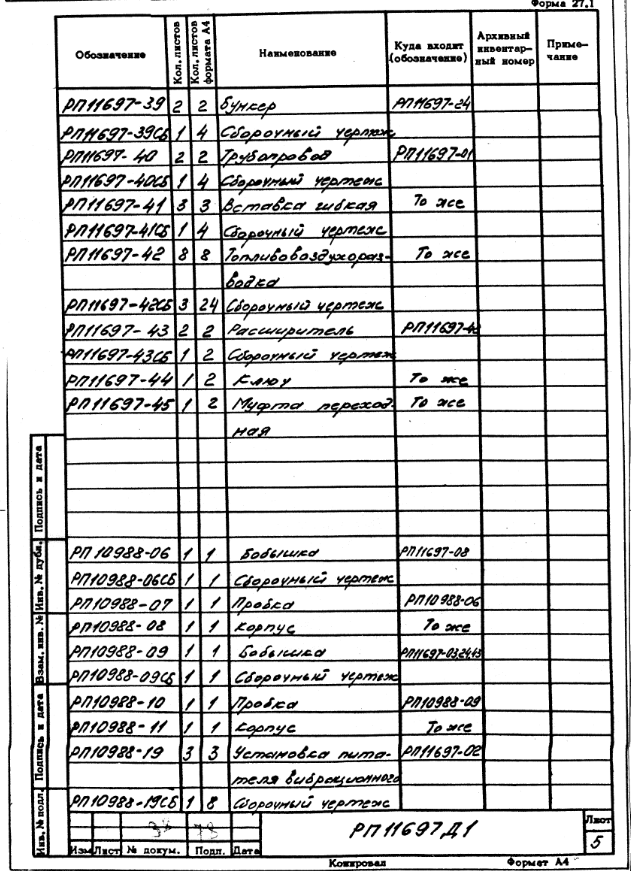 Форма 27.1
Обозначение Кол. листов Кол. листов формата А4 Наименование Куда входит (обозначение) Архивный инвентар-ный номер Приме-чание
РП11697-39 2 2 Бункер РП11697-24
РП11697-39СБ 1 4 Сборочный чертеж
РП11697-40 2 2 Трубопровод РП11697-01
РП11697-40СБ 1 4 Сборочный чертеж
РП11697-41 3 3 Вставка гибкая То же
РП11697-41СБ 1 4 Сборочный чертеж
РП11697-42 8 8 Топливовоздухораз- То же
водка
РП11697-42СБ 3 24 Сборочный чертеж
РП11697-43 2 2 Расширитель РП11697-42
РП11697-43СБ 1 2 Сборочный чертеж
РП11697-44 1 2 Ключ То же
РП11697-45 1 2 Муфта переход- То же
ная
РП10988-06 1 1 Бобышка РП11697-08
РП10988-06СБ 1 1 Сборочный чертеж
РП10988-07 1 1 Пробка РП10988-06
РП10988-08 1 1 Корпус То же
РП10988-09 1 1 Бобышка РП11697-03,24,43
РП10988-09СБ 1 1 Сборочный чертеж
РП10988-10 1 1 Пробка РП10988-09
РП10988-11 1 1 Корпус То же
РП10988-19 3 3 Установка пита- РП11697-02
теля вибрационного
РП10988-19СБ 1 8 Сборочный чертеж
Инв. № подл. Подпись и дата Взам. инв. № Инв. № дубл. Подпись и дата
Изм Лист № докум. Подп. Дата
РП11697Д1
Лист
5
Копировал Формат А4